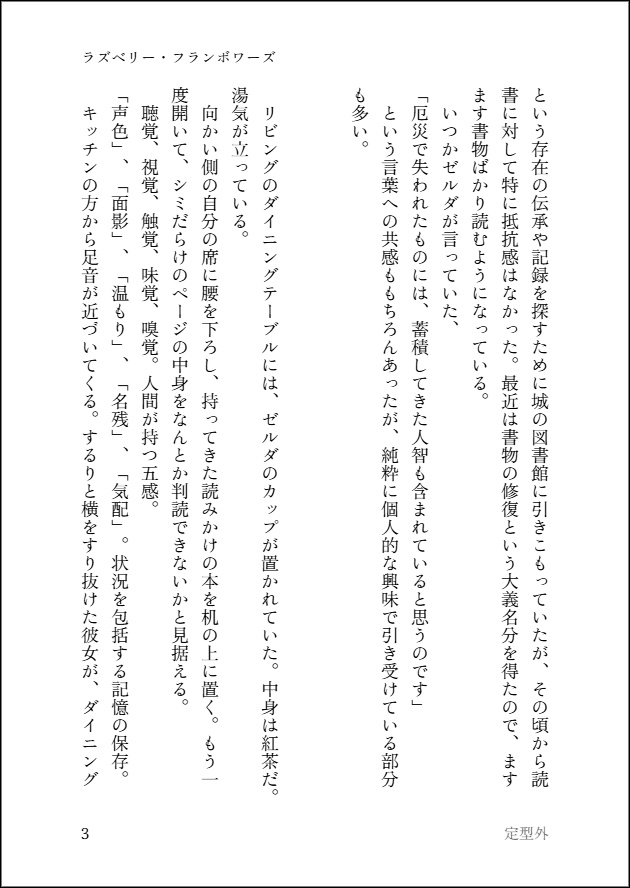 ラズベリー・フランボワーズ
という存在の伝承や記録を探すために城の図書館に引きこもっていたが、その頃から読
書に対して特に抵抗感はなかった。最近は書物の修復という大義名分を得たので、ます
ます書物ばかり読むようになっている。
いつかゼルダが言っていた、
「厄災で失われたものには、蓄積してきた人智も含まれていると思うのです」
という言葉への共感ももちろんあったが、純粋に個人的な興味で引き受けている部分
も多い。
リビングのダイニングテーブルには、ゼルダのカップが置かれていた。中身は紅茶だ。
湯気が立っている。
向かい側の自分の席に腰を下ろし、持ってきた読みかけの本を机の上に置く。もう一
度開いて、シミだらけのページの中身をなんとか判読できないかと見据える。
聴覚、視覚、触覚、味覚、嗅覚。人間が持つ五感。
「声色」、「面影」、「温もり」、「名残」、「気配」。状況を包括する記憶の保存。
キッチンの方から足音が近づいてくる。するりと横をすり抜けた彼女が、ダイニング
3
定型外